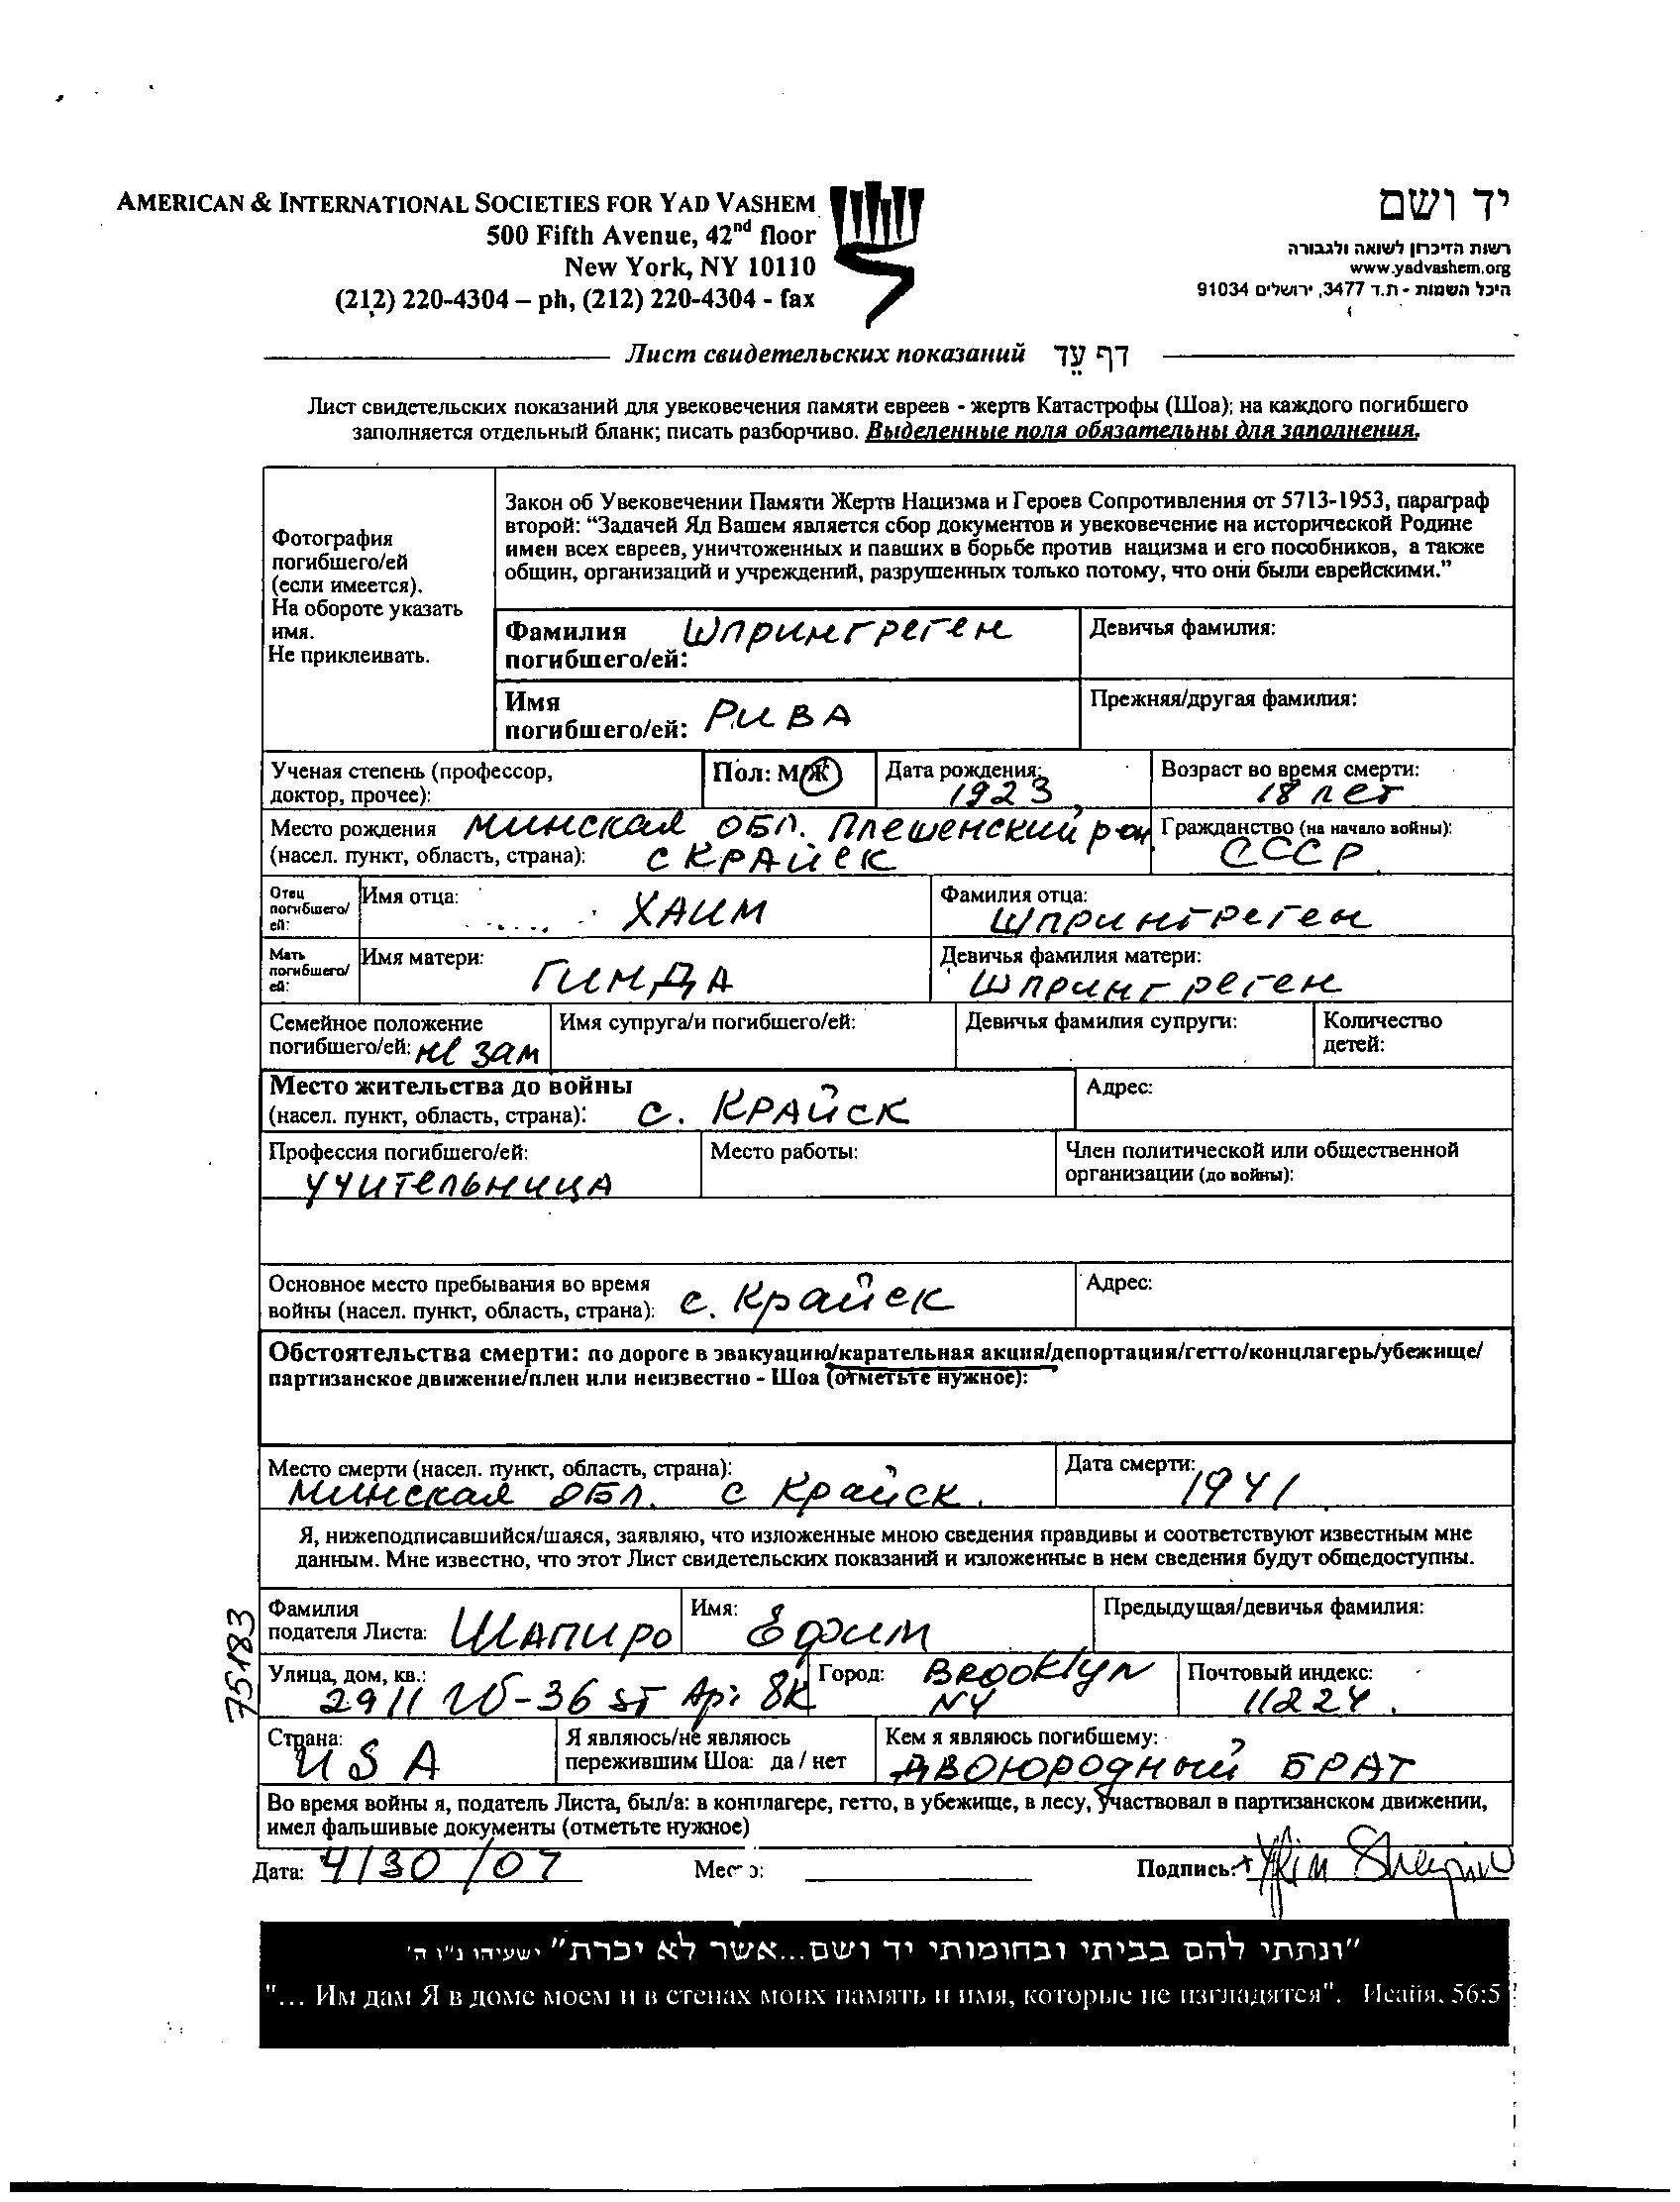 AMERICAN & INTERNATIONAL SOCIETIES FOR YAD VASHEM
500 Fifth Avenue, 42nd floor
New York, NY 10110
(212) 220-4304 – ph, (212) 220-4304 - fax
יד ושם
רשות הזיכרון לשואה ולגבורה
www.yadvashem.org
היכל השמות - ת.ד 3477, ירושלים 91034
Лист свидетельских показаний דף עֵד
Лист свидетельских показаний для увековечения памяти евреев - жертв Катастрофы (Шоа); на каждого погибшего
заполняется отдельный бланк; писать разборчиво. Выделенные поля обязательны для заполнения.
Фотография
погибшего/ей
(если имеется).
На обороте указать
имя.
Не приклеивать.
Закон об Увековечении Памяти Жертв Нацизма и Героев Сопротивления от 5713-1953, параграф
второй: “Задачей Яд Вашем является сбор документов и увековечение на исторической Родине
имен всех евреев, уничтоженных и павших в борьбе против нацизма и его пособников, а также
общин, организаций и учреждений, разрушенных только потому, что они были еврейскими.”
Фамилия
погибшего/ей: Шпрингреген
Девичья фамилия:
Имя
погибшего/ей: РИВА
Прежняя/другая фамилия:
Ученая степень (профессор,
доктор, прочее):
Пол: М/Ж
Дата рождения:
1923
Возраст во время смерти:
18 лет
Место рождения Минская ОБЛ. Плешенский рон
(насел. пункт, область, страна): с КРАЙСК
Гражданство (на начало войны):
СССР
Отец
погибшего/
ей:
Имя отца: ХАИМ
Фамилия отца:
Шпрингреген
Мать
погибшего/
ей:
Имя матери: ГИНДА
Девичья фамилия матери:
Шпрингреген
Семейное положение
погибшего/ей: не зам
Имя супруга/и погибшего/ей:
Девичья фамилия супруги:
Количество
детей:
Место жительства до войны
(насел. пункт, область, страна): с. КРАЙСК
Адрес:
Профессия погибшего/ей:
Учительница
Место работы:
Член политической или общественной
организации (до войны):
Основное место пребывания во время
войны (насел. пункт, область, страна): с. Крайск
Адрес:
Обстоятельства смерти: по дороге в эвакуацию/карательная акция/депортация/гетто/концлагерь/убежище/
партизанское движение/плен или неизвестно - Шоа (отметьте нужное):
Место смерти (насел. пункт, область, страна):
Минская ОБЛ. с Крайск.
Дата смерти:
1941
Я, нижеподписавшийся/шаяся, заявляю, что изложенные мною сведения правдивы и соответствуют известным мне
данным. Мне известно, что этот Лист свидетельских показаний и изложенные в нем сведения будут общедоступны.
75183
Фамилия
подателя Листа: Шапиро
Имя: Ефим
Предыдущая/девичья фамилия:
Улица, дом, кв.:
2911 W-36 ST Apt 8K
Город: Brooklyn
NY
Почтовый индекс:
11224.
Страна:
USA
Я являюсь/не являюсь
пережившим Шоа: да / нет
Кем я являюсь погибшему:
ДВОЮРОДНЫЙ БРАТ
Во время войны я, податель Листа, был/а: в концлагере, гетто, в убежище, в лесу, участвовал в партизанском движении,
имел фальшивые документы (отметьте нужное)
Дата: 4/30/07 Место: Подпись: Yfim Shapiro
"ונתתי להם בביתי ובחומותי יד ושם...אשר לא יכרת" ישעיהו נ"ו ה'
"... Им дам Я в доме моем и в стенах моих память и имя, которые не изгладятся". Исайя, 56:5